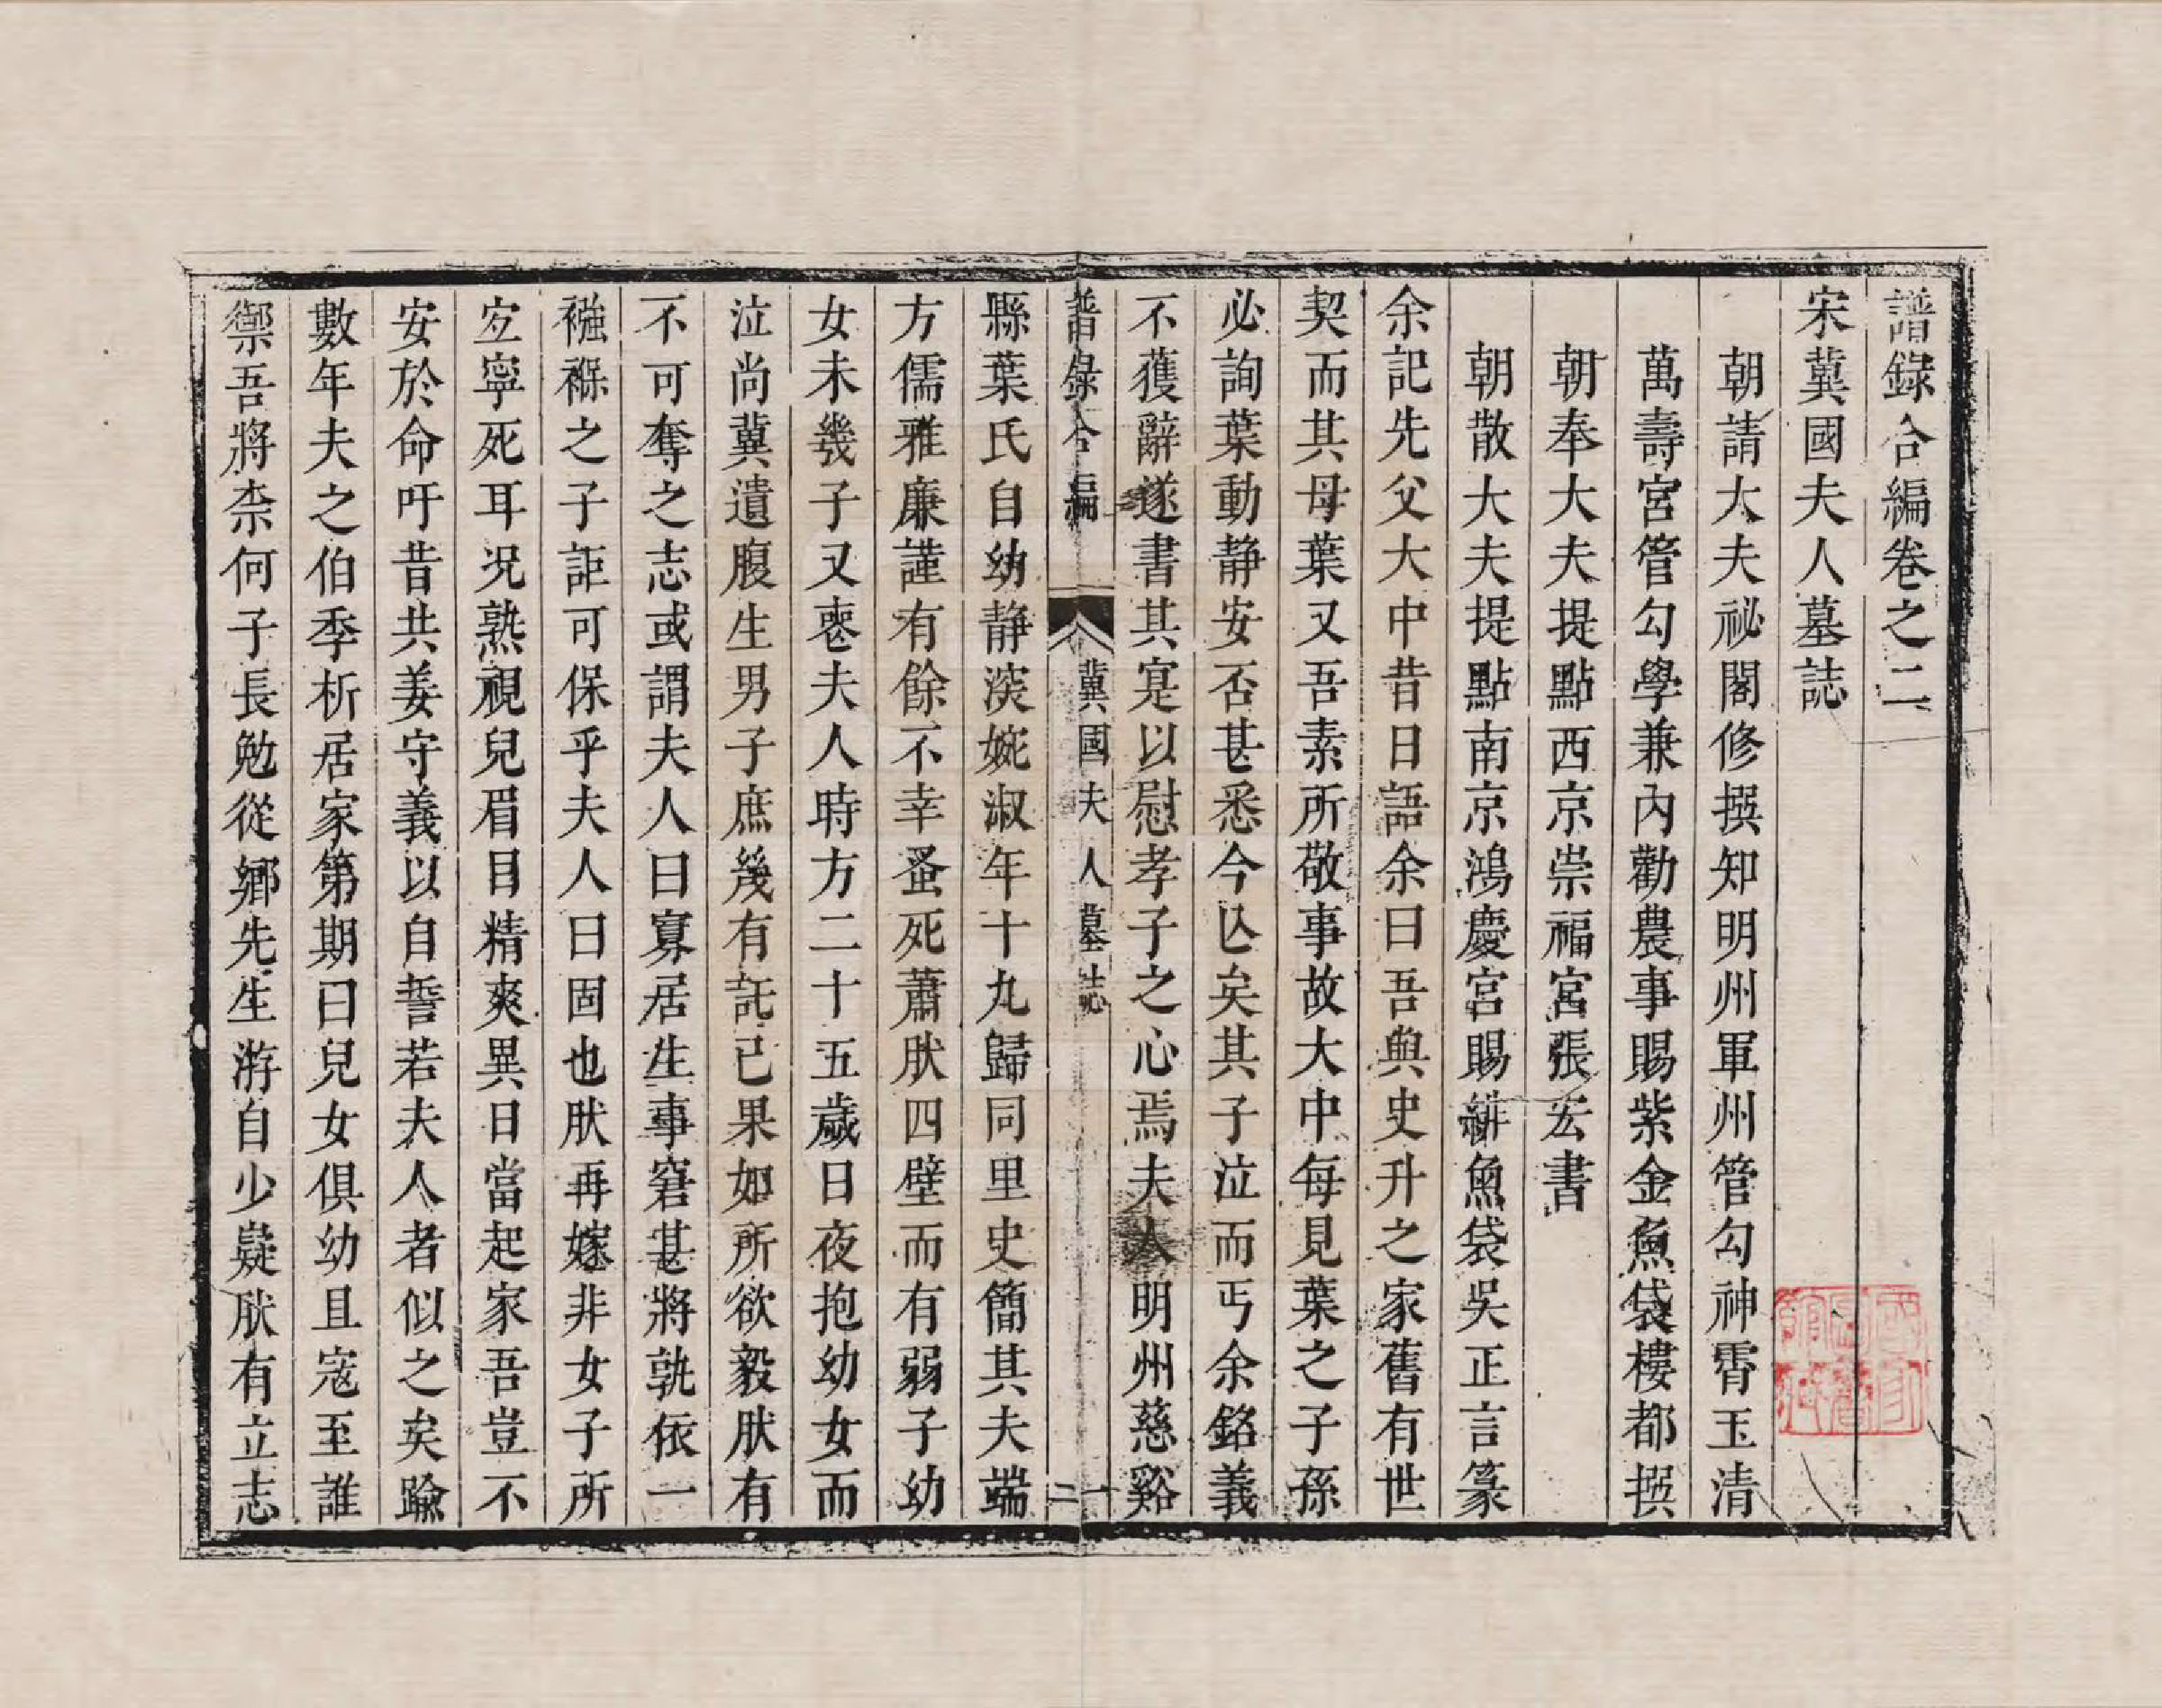 譜録合編卷之二
宋冀國夫人墓誌
朝請大夫祕閣修撰知明州軍州管勾神霄玉清
萬壽宮管勾學兼內勸農事賜紫金魚袋樓都撰
朝奉大夫提點西京崇福宮張宏書
朝散大夫提點南京鴻慶宮賜緋魚袋吳正言篆
余記先父大中昔日語余曰吾與史升之家舊有世
契而其母葉又吾素所敬事故大中每見葉之子孫
必詢葉動静安否甚悉今亾矣其子泣而丐余銘義
不獲辭遂書其寔以慰孝子之心焉夫人明州慈谿
譜録合編 冀國夫人墓誌 二
縣葉氏自幼静淡婉淑年十九歸同里史簡其夫端
方儒雅廉謹有餘不幸蚤死蕭肰四壁而有弱子幼
女未幾子又喪夫人時方二十五歲日夜抱幼女而
泣尚冀遺腹生男子庶幾有託已果如所欲毅肰有
不可奪之志或謂夫人曰寡居生事窘甚將孰依一
襁褓之子詎可保乎夫人曰固也肰再嫁非女子所
宐寧死耳况熟視兒眉目精爽異日當起家吾豈不
安於命吁昔共姜守義以自誓若夫人者似之矣踰
數年夫之伯季析居家第期曰兒女俱幼且寇至誰
禦吾將柰何子長勉從鄉先生游自少嶷肰有立志